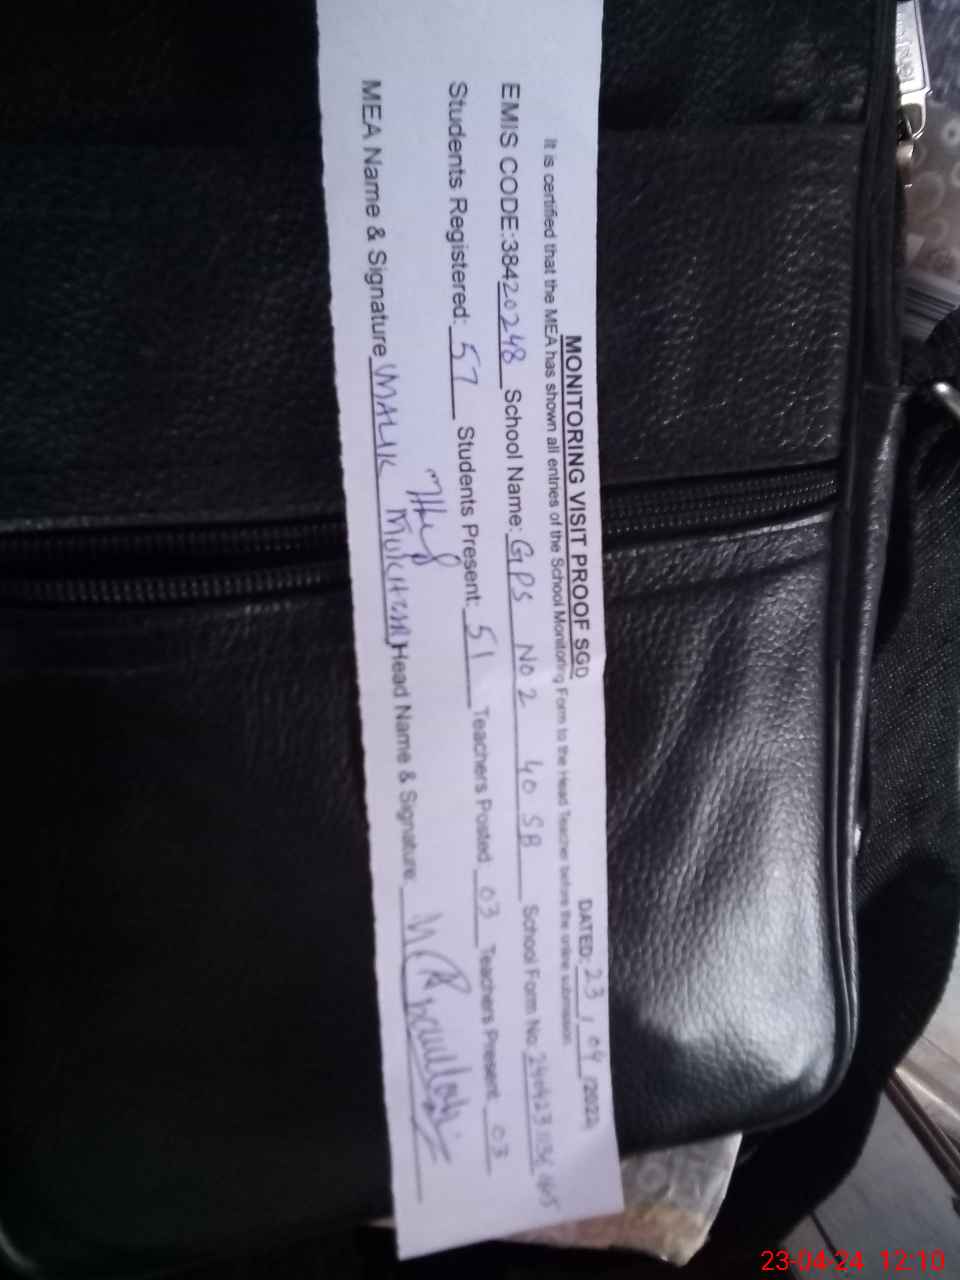 MONITORING VISIT PROOF SGD DATED: 23 / 04 /2022
It is certified that the MEA has shown all entries of the School Monitoring Form to the Head Teacher before the online submission
EMIS CODE:38420248 School Name: GPS NO 2 40 SB School Form No.
Students Registered: 57 Students Present: 51 Teachers Posted 03 Teachers Present 03
MEA Name & Signature MALIK Head Name & Signature:
23-04-24 12:10